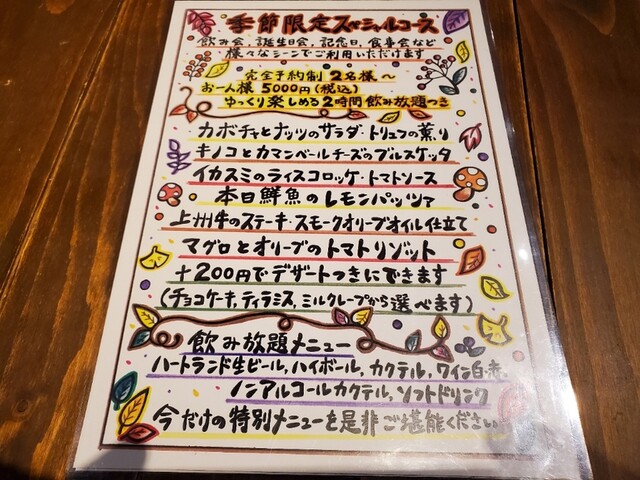 季節限定スペシャルコース
飲み会、誕生日会、記念日、食事会など
様々なシーンでご利用いただけます
完全予約制 2名様〜
お一人様 5000円(税込)
ゆっくり楽しめる2時間飲み放題つき
カボチャとナッツのサラダ・トリュフの薫り
キノコとカマンベールチーズのブルスケッタ
イカスミのライスコロッケ・トマトソース
本日鮮魚のレモンパッツァ
上州牛のステーキ・スモークオリーブオイル仕立て
マグロとオリーブのトマトリゾット
+200円でデザートつきにできます
(チョコケーキ、ティラミス、ミルクレープから選べます)
飲み放題メニュー
ハートランド生ビール、ハイボール、カクテル、ワイン白・赤、
ノンアルコールカクテル、ソフトドリンク
今だけの特別メニューを是非ご堪能ください